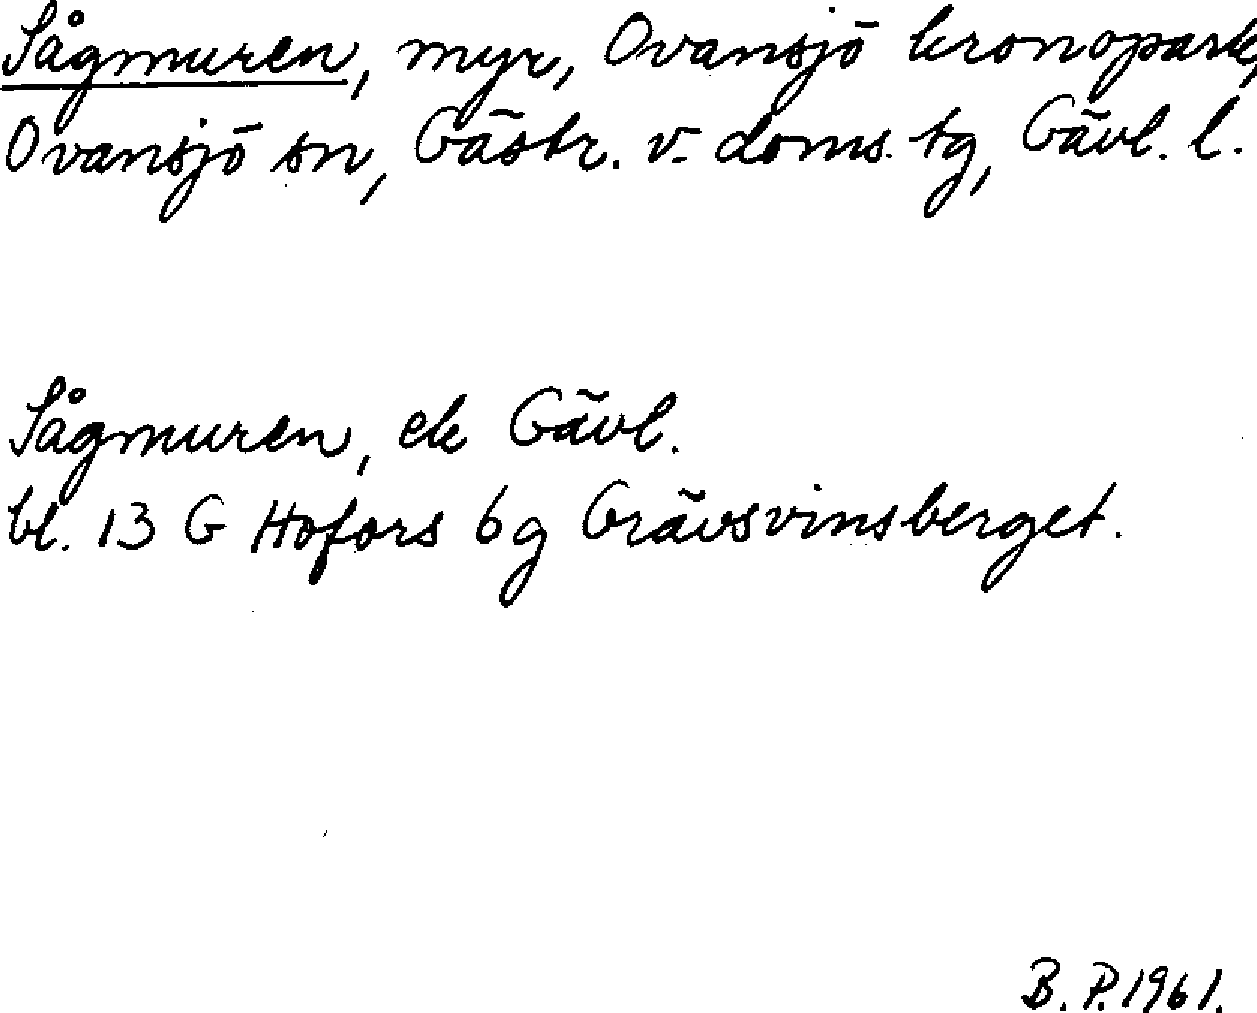 Sågmuren, myr, Ovansjö kronopark,
Ovansjö sn, Gästr. v. doms. tg, Gävl. l.
Sågmuren, ek Gävl.
bl. 13 G Hofors 6g Grävsvinsberget.
B. P. 1961.